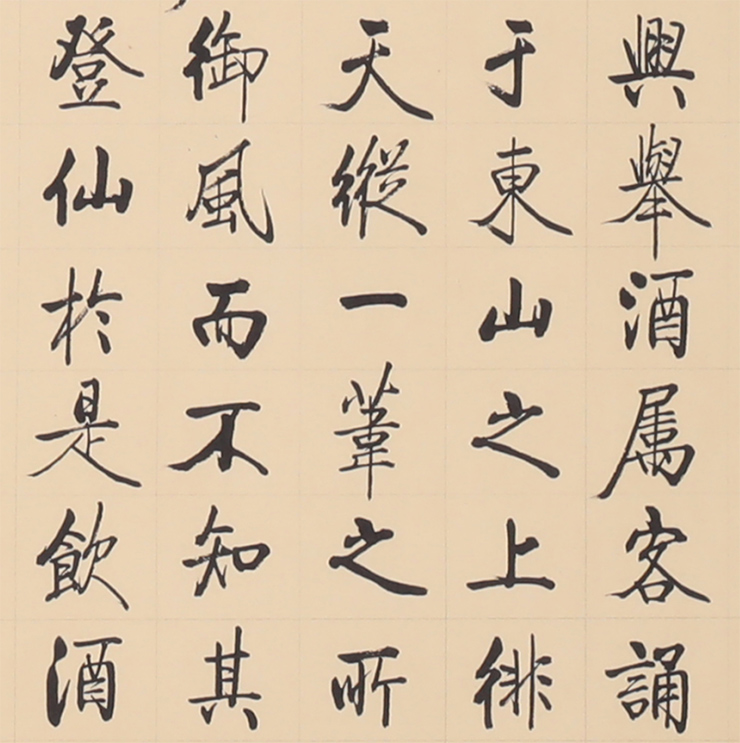 興舉酒属客誦
于東山之上徘
天縱一葦之所
御風而不知其
登仙於是飲酒